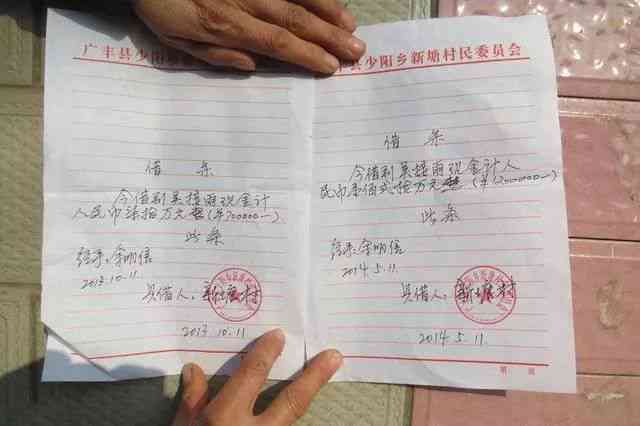 广丰县少阳
借条
今借到吴接雨现金计
人民币柒拾万元整(¥700000—)
此条
经手:余明信
2013.10.11.
具借人:新塘村
2013.10.11
丰县少阳乡新塘村民委员会
借条
今借到吴接雨现金计人
民币壹佰弍拾万元整(¥1200000—)
此条
经手:余明信
2014.5.11.
具借人:新塘村
2014.5.11.
第 页